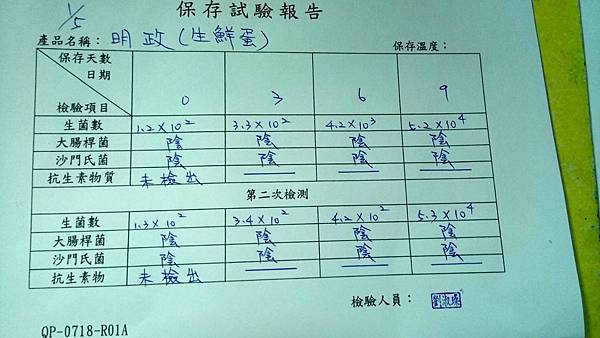 1/5
保存試驗報告
產品名稱：明政(生鮮蛋) 保存溫度：
保存天數
日期
檢驗項目 0 3 6 9
生菌數 1.2×10² 3.3×10² 4.2×10³ 5.2×10⁴
大腸桿菌 陰 陰 陰 陰
沙門氏菌 陰 陰 陰 陰
抗生素物質 未檢出
第二次檢測
生菌數 1.3×10² 3.4×10² 4.2×10² 5.3×10⁴
大腸桿菌 陰 陰 陰 陰
沙門氏菌 陰 陰 陰 陰
抗生素物 未檢出
檢驗人員：
QP-0718-R01A